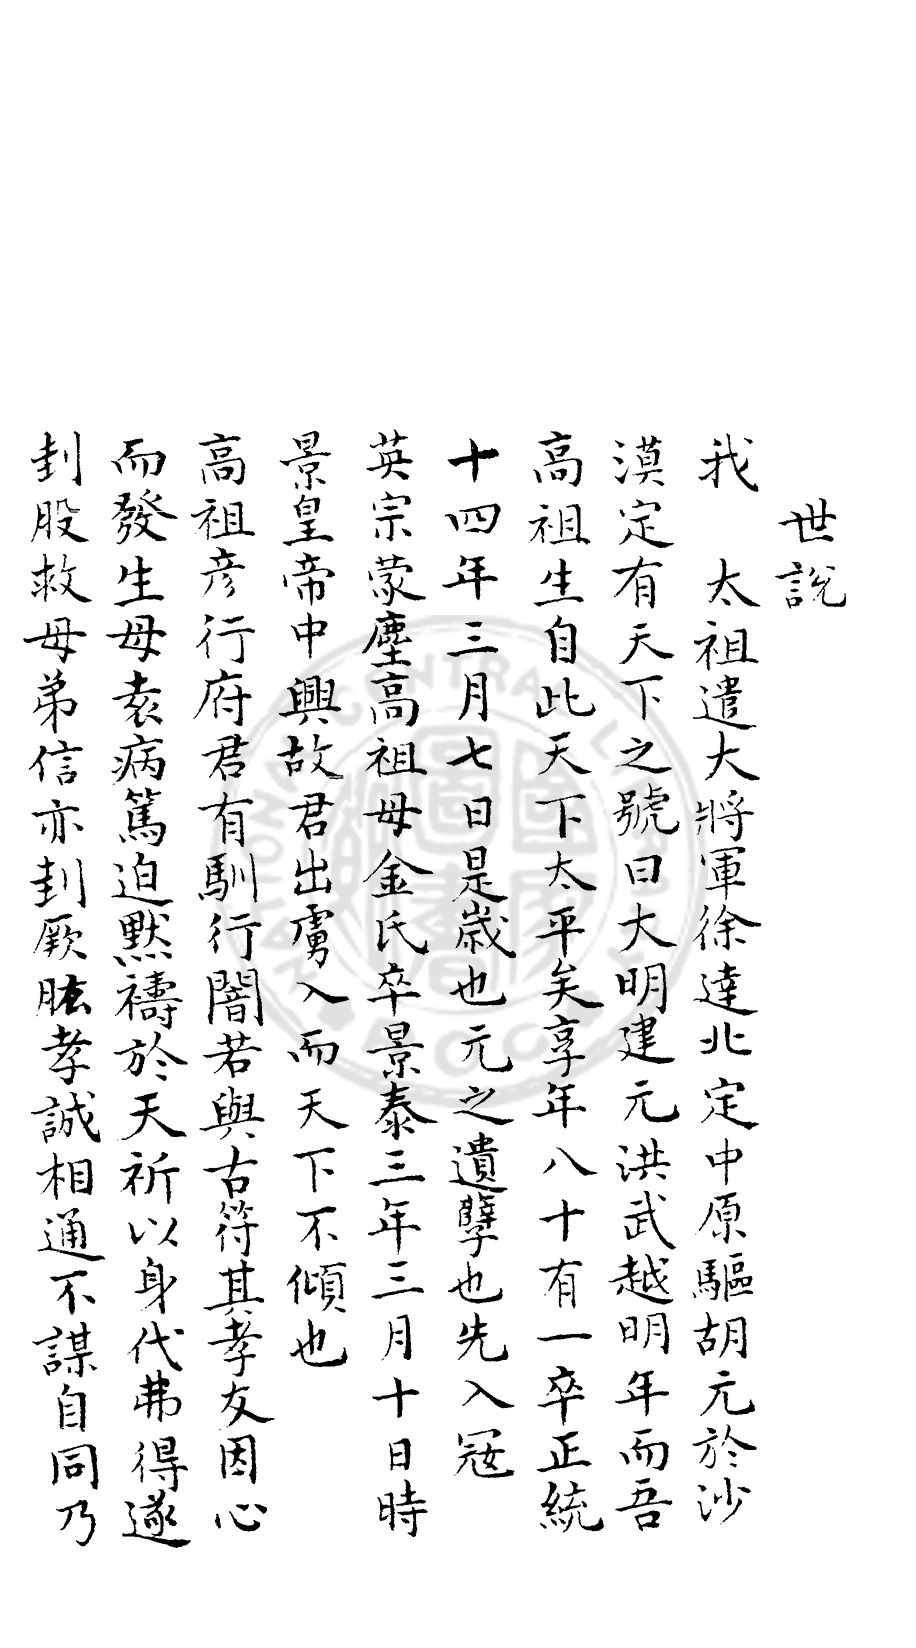 世說
我 太祖遣大將軍徐達北定中原驅胡元於沙
漠定有天下之號曰大明建元洪武越明年而吾
高祖生自此天下太平矣享年八十有一卒正統
十四年三月七日是歲也元之遺孽也先入寇
英宗蒙塵高祖母金氏卒景泰三年三月十日時
景皇帝中興故君出虜入而天下不傾也
高祖彥行府君有馴行闇若與古符其孝友因心
而發生母袁病篤迫默禱於天祈以身代弗得遂
刲股救母弟信亦刲厥肱孝誠相通不謀自同乃